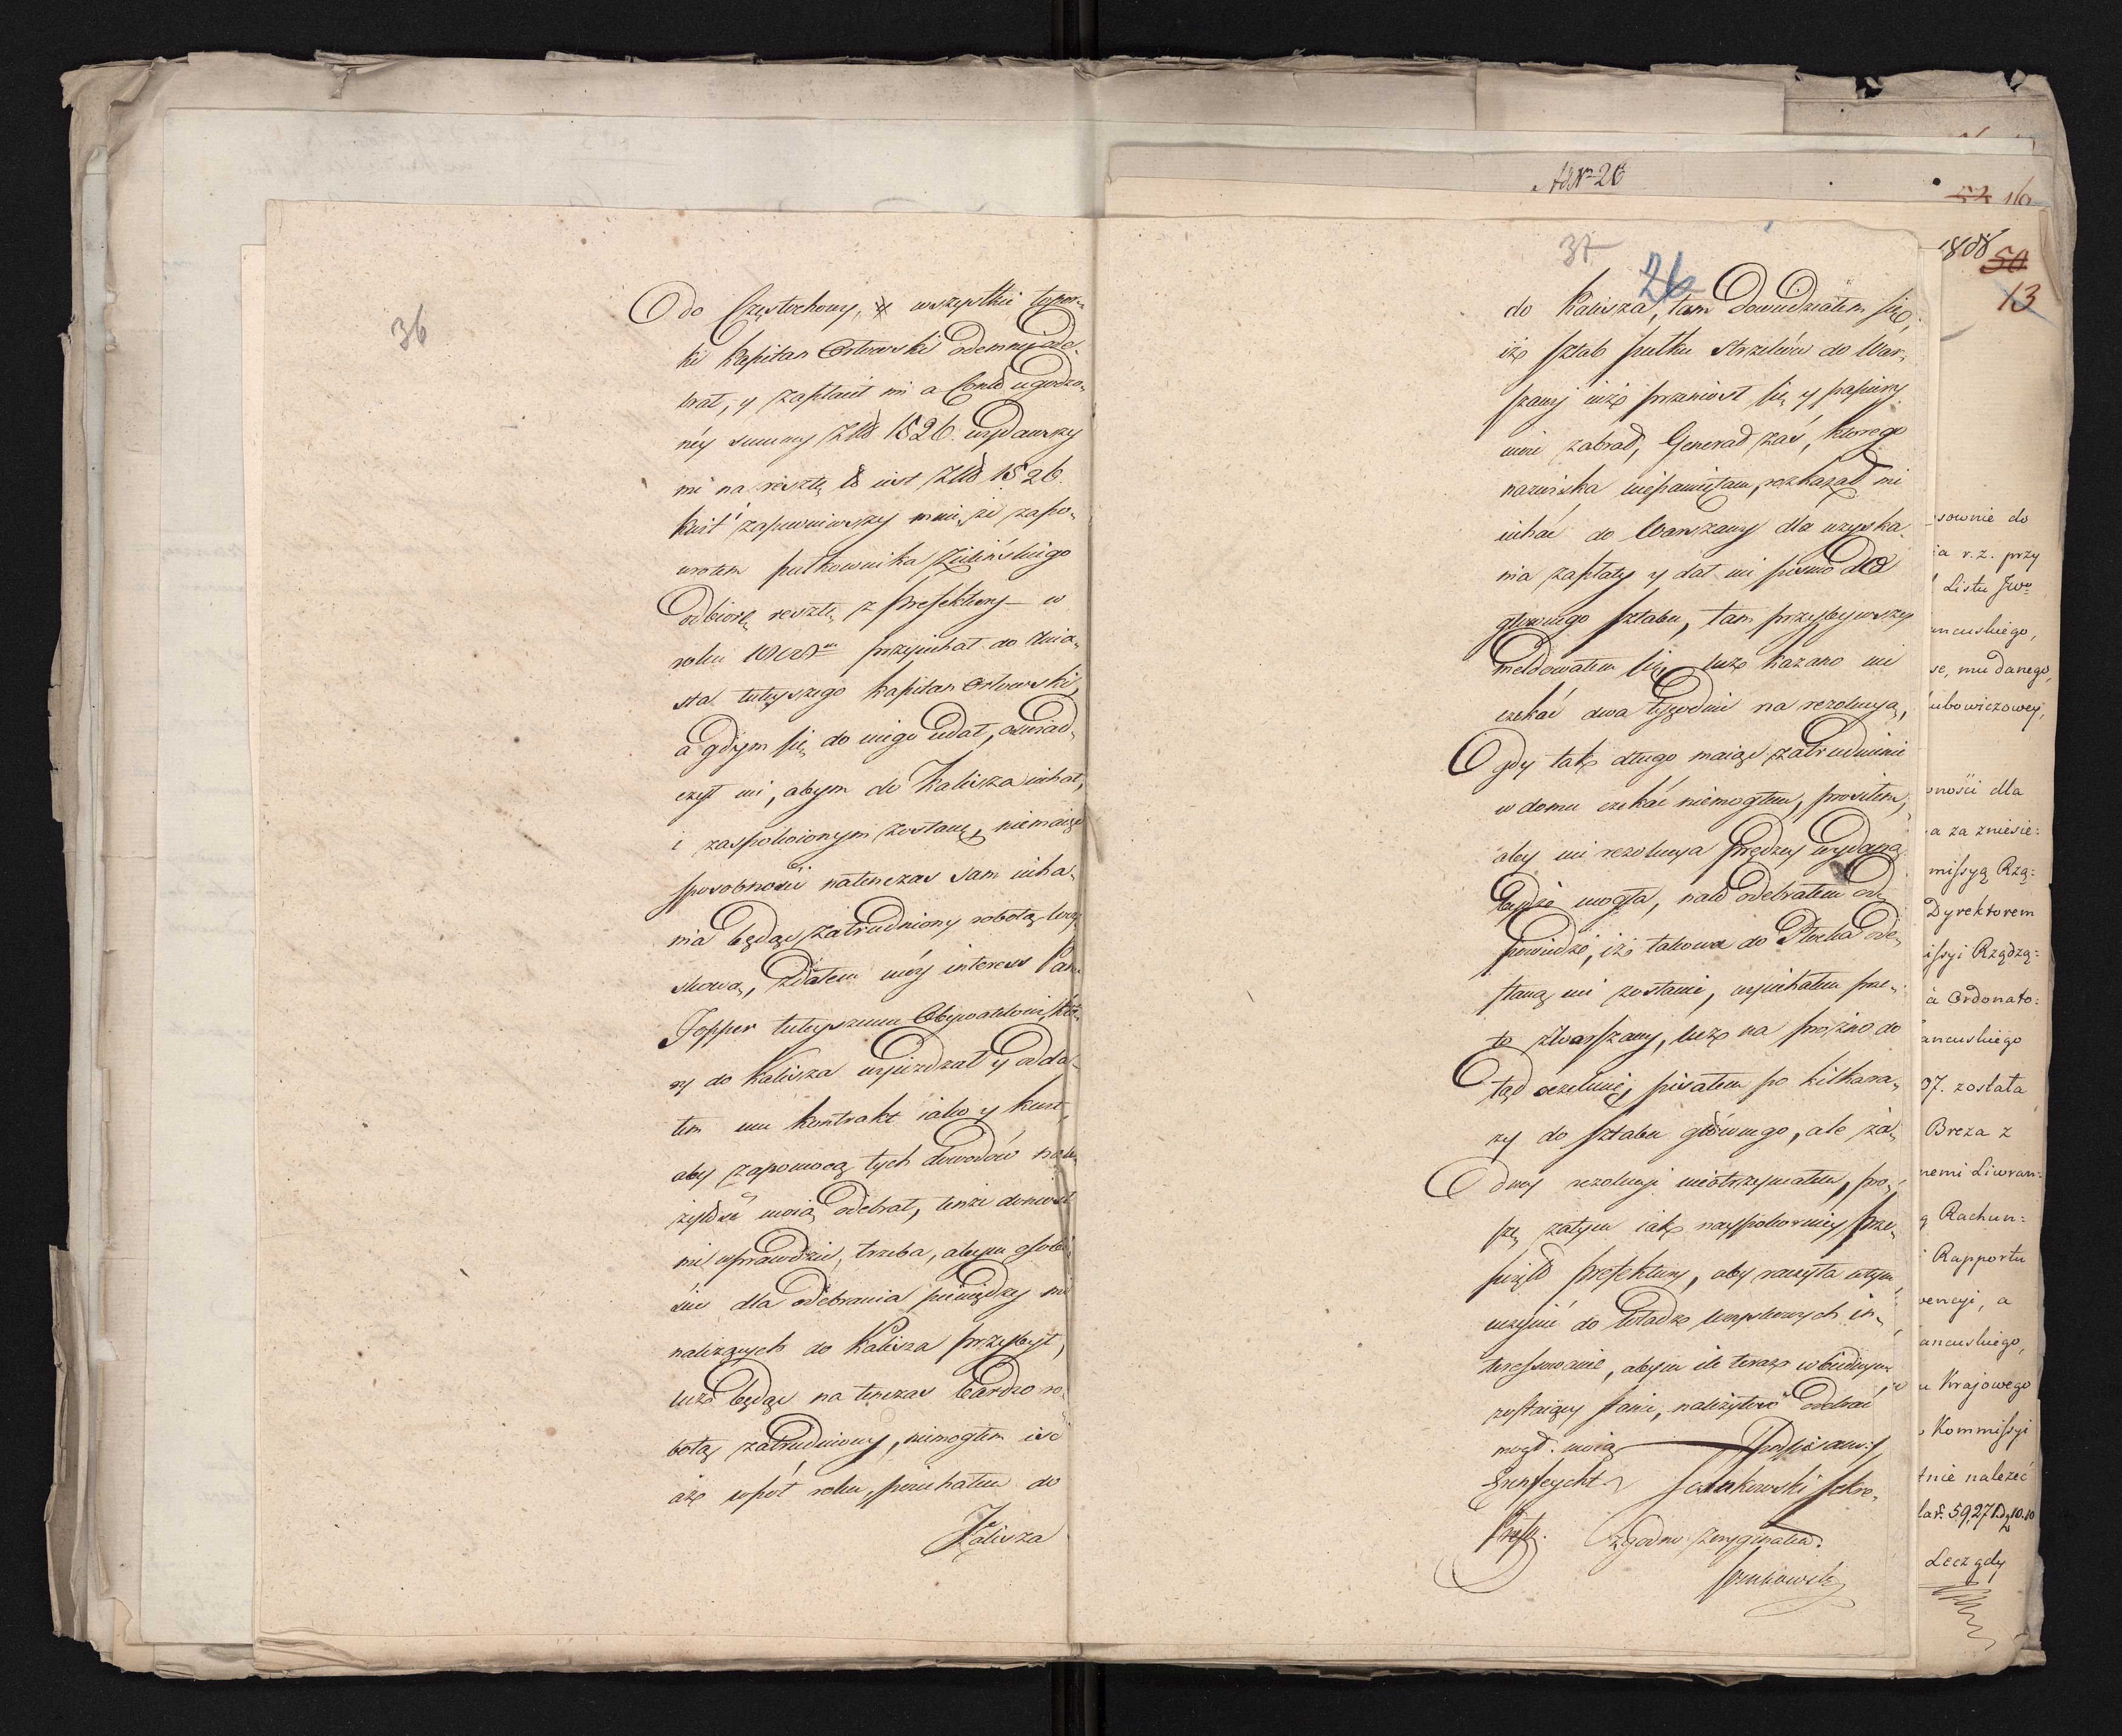 36
do Częstochowy, wszystkie topor„
ki Kapitan Orłowski odemnie ode„
brał, y zapłacił mi a Conto ugodzo„
néy summy Złt 1526. wydawszy
mi na resztę to iest Złt 1526.
kwit zapewniwszy mnie, że zapo„
wrotem pułkownika Zielińskiego
odbiorę resztę z Prefektury – w
roku przyiechał do Mia„
sta tuteyszego Kapitan Orłowski,
a gdym się do niego udał, oświad„
czył mi, abym do Kalisza iechał,
i zaspokoionym zostanę, niemaiąc
sposobności natenczas sam iecha„
nia będąc zatrudniony robotą woy„
skową, zdałem móy interess Panu
Topper tuteyszemu Obywatelowi, któ„
ry do Kalisza wyieżdżał y odda„
łem mu kontrakt iako y kwit,
aby zapomocą tych dowodów nale„
żytość moią odebrał, tenże doniósł
mi wprawdzie, trzeba, abym osobi„
ście dla odebrania pieniędzy mi
należących do Kalisza przybył,
lecz będąc na tenczas bardzo ro„
botą zatrudniony, niemogłem iść
aż w pół roku, poiechałem do
Kalisza
AdNr 26
37
26
do Kalisza, tam dowiedziałem się,
iż sztab pułku strzelców do War„
szawy iuż przeniósł się y papiery
mi zabrał, Generał zaś, którego
nazwiska niepamiętam, rozkazał mi
iechać do Warszawy dla uzyska„
nia zapłaty y dał mi pismo do
głównego sztabu, tam przybywszy
meldowałem się, lecz kazano mi
czekać dwa tygodnie na rezolucyą,
gdy tak długo maiąc zatrudnienie
w domu czekać niemogłem, prosiłem,
aby mi rezolucya prędzey wydaną
bydź mogła, na to odebrałem od„
powiedź, iż takowa do Płocka ode„
słaną mi zostanie, wyiechałem prze„
to z Warszawy, lecz na próżno do
tąd oczekuię, pisałem po kilkara„
zy do sztabu głównego, ale ża„
dney rezolucyi nieotrzymałem, pro„
szę zatym iak naypokorniey Prze„
świętę Prefekturę, aby raczyła w tym
uczynić do Władz woyskowych in„
teressowanie, abym ile teraz w biednym
zostaiący stanie, należytość odebrać
mógł moią Podpisany
Sekre„
Pref. Zgodno z oryginałem.
1808
52 16
50
13
sownie do
ia r. z. przy
Listu JWo
ancuskiego,
se, mu danego,
ubowiczowey,
ności dla
a za zniesie=
missyą Rzą=
Dyrektorem
issyi Rządzą=
à Ordonato=
ancuskiego
07. została
Breza z
nemi Liwran=
ą Rachun=
Rapportu
encyi, a
ancuskiego,
u Krajowego
Kommissyi
tnie należeć
Lecz gdy